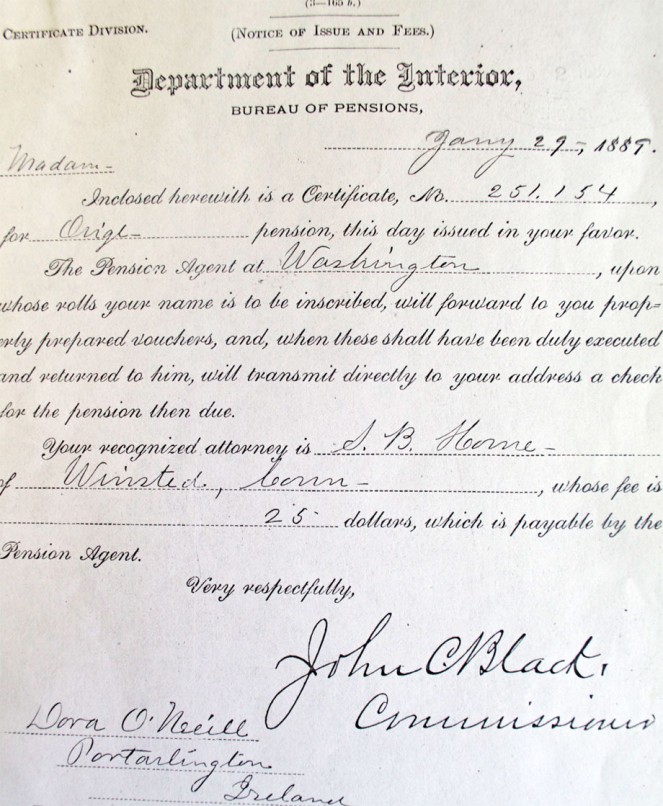 (3—165 b.)
CERTIFICATE DIVISION.
(NOTICE OF ISSUE AND FEES.)
Department of the Interior,
BUREAU OF PENSIONS,
Jany 29, 1889.
Madam
Inclosed herewith is a Certificate, No. 251.154,
for Origl pension, this day issued in your favor.
The Pension Agent at Washington, upon
whose rolls your name is to be inscribed, will forward to you prop=
erly prepared vouchers, and, when these shall have been duly executed
and returned to him, will transmit directly to your address a check
for the pension then due.
Your recognized attorney is S. B. Horne
of Winsted, Conn, whose fee is
25 dollars, which is payable by the
Pension Agent.
Very respectfully,
John C Black.
Commissioner
Dora O'Neill
Portarlington
Ireland